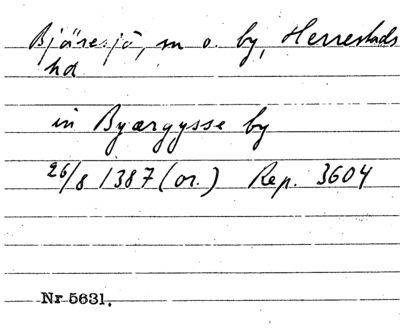 Bjäresjö, sn o. by, Herrestads
hd
in Byærgysse by
26/8 1387 (or.) Rep. 3604
Nr 5631.